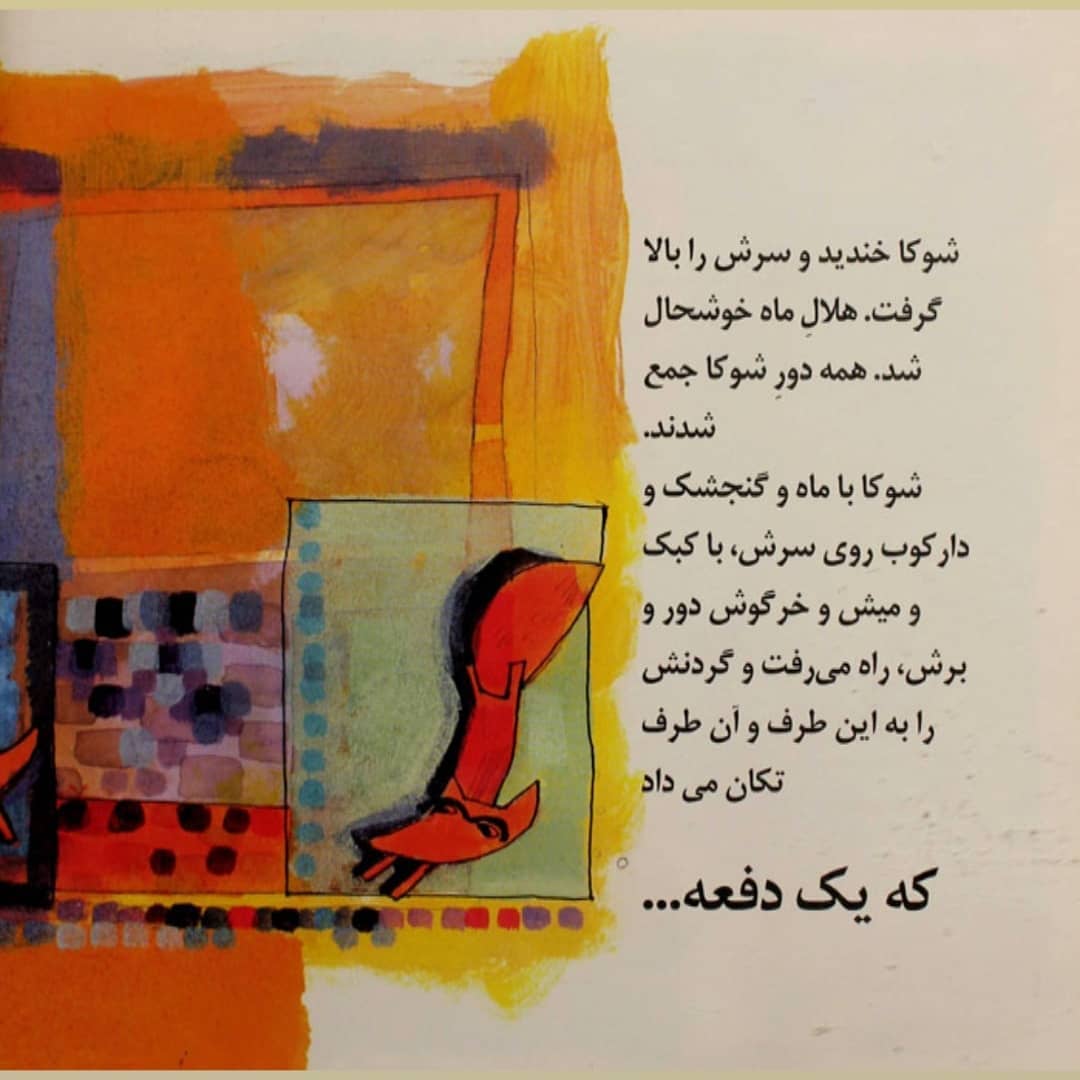 شوکا خندید و سرش را بالا
گرفت. هلالِ ماه خوشحال
شد. همه دورِ شوکا جمع
شدند.
شوکا با ماه و گنجشک و
دارکوب روی سرش، با کبک
و میش و خرگوش دور و
برش، راه می‌رفت و گردنش
را به این طرف و آن طرف
تکان می داد
که یک دفعه...